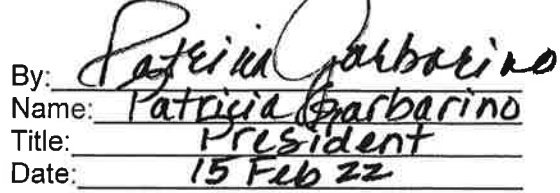 By: Patricia Garbarino
Name: Patricia Garbarino
Title: President
Date: 15 Feb 22